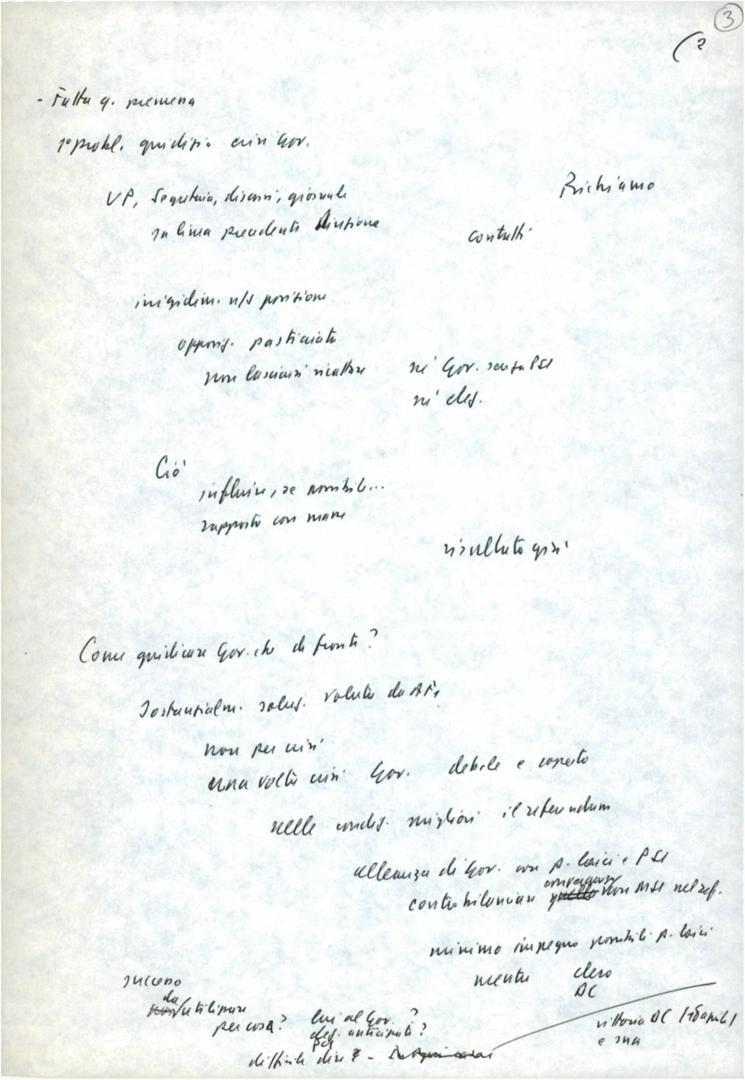 3
- Fatta q. premessa
1° probl. giudizio crisi Gov.
VP, Segreteria, discorsi, giornale
su linea precedente Direzione
Richiamo
contatti
irrigidim. n/s posizione
opposiz. pasticciata
non lasciarsi ricattare
né Gov. senza PSI
né elez.
Ciò
influire, se possibile...
rapporto con masse
risultato crisi
Come giudicare Gov. che di fronte?
Sostanzialm. soluz. voluta da AF.
non per crisi
una volta crisi Gov. debole e coperto
nelle condiz. migliori il referendum
alleanza di Gov. con p. laici e PSI
controbilanciare convergenza con MSI nel ref.
minimo impegno possibile p. laici
mentre clero
DC
successo
da utilizzare
per cosa? lui al Gov.?
elez. anticipate?
PCI
difficile dire
vittoria DC
e sua